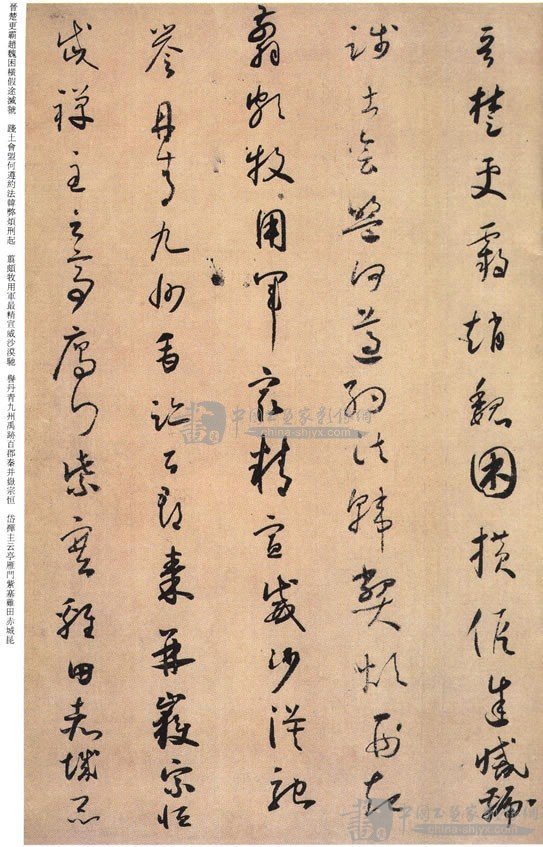 晉楚更霸趙魏困橫假途滅虢
踐土會盟何遵約法韓弊煩刑起
翦頗牧用軍最精宣威沙漠馳
譽丹青九州禹跡百郡秦并嶽宗恒
岱禪主云亭雁門紫塞雞田赤城昆
晉楚更霸趙魏困橫假途滅虢 踐土會盟何遵約法韓弊煩刑起 翦頗牧用軍最精宣威沙漠馳 譽丹青九州禹跡百郡秦并嶽宗恒 岱禪主云亭雁門紫塞雞田赤城昆
畫
中国书画家影像网
china-shjyx.com
畫
中国书画家影像网
china-shjyx.com